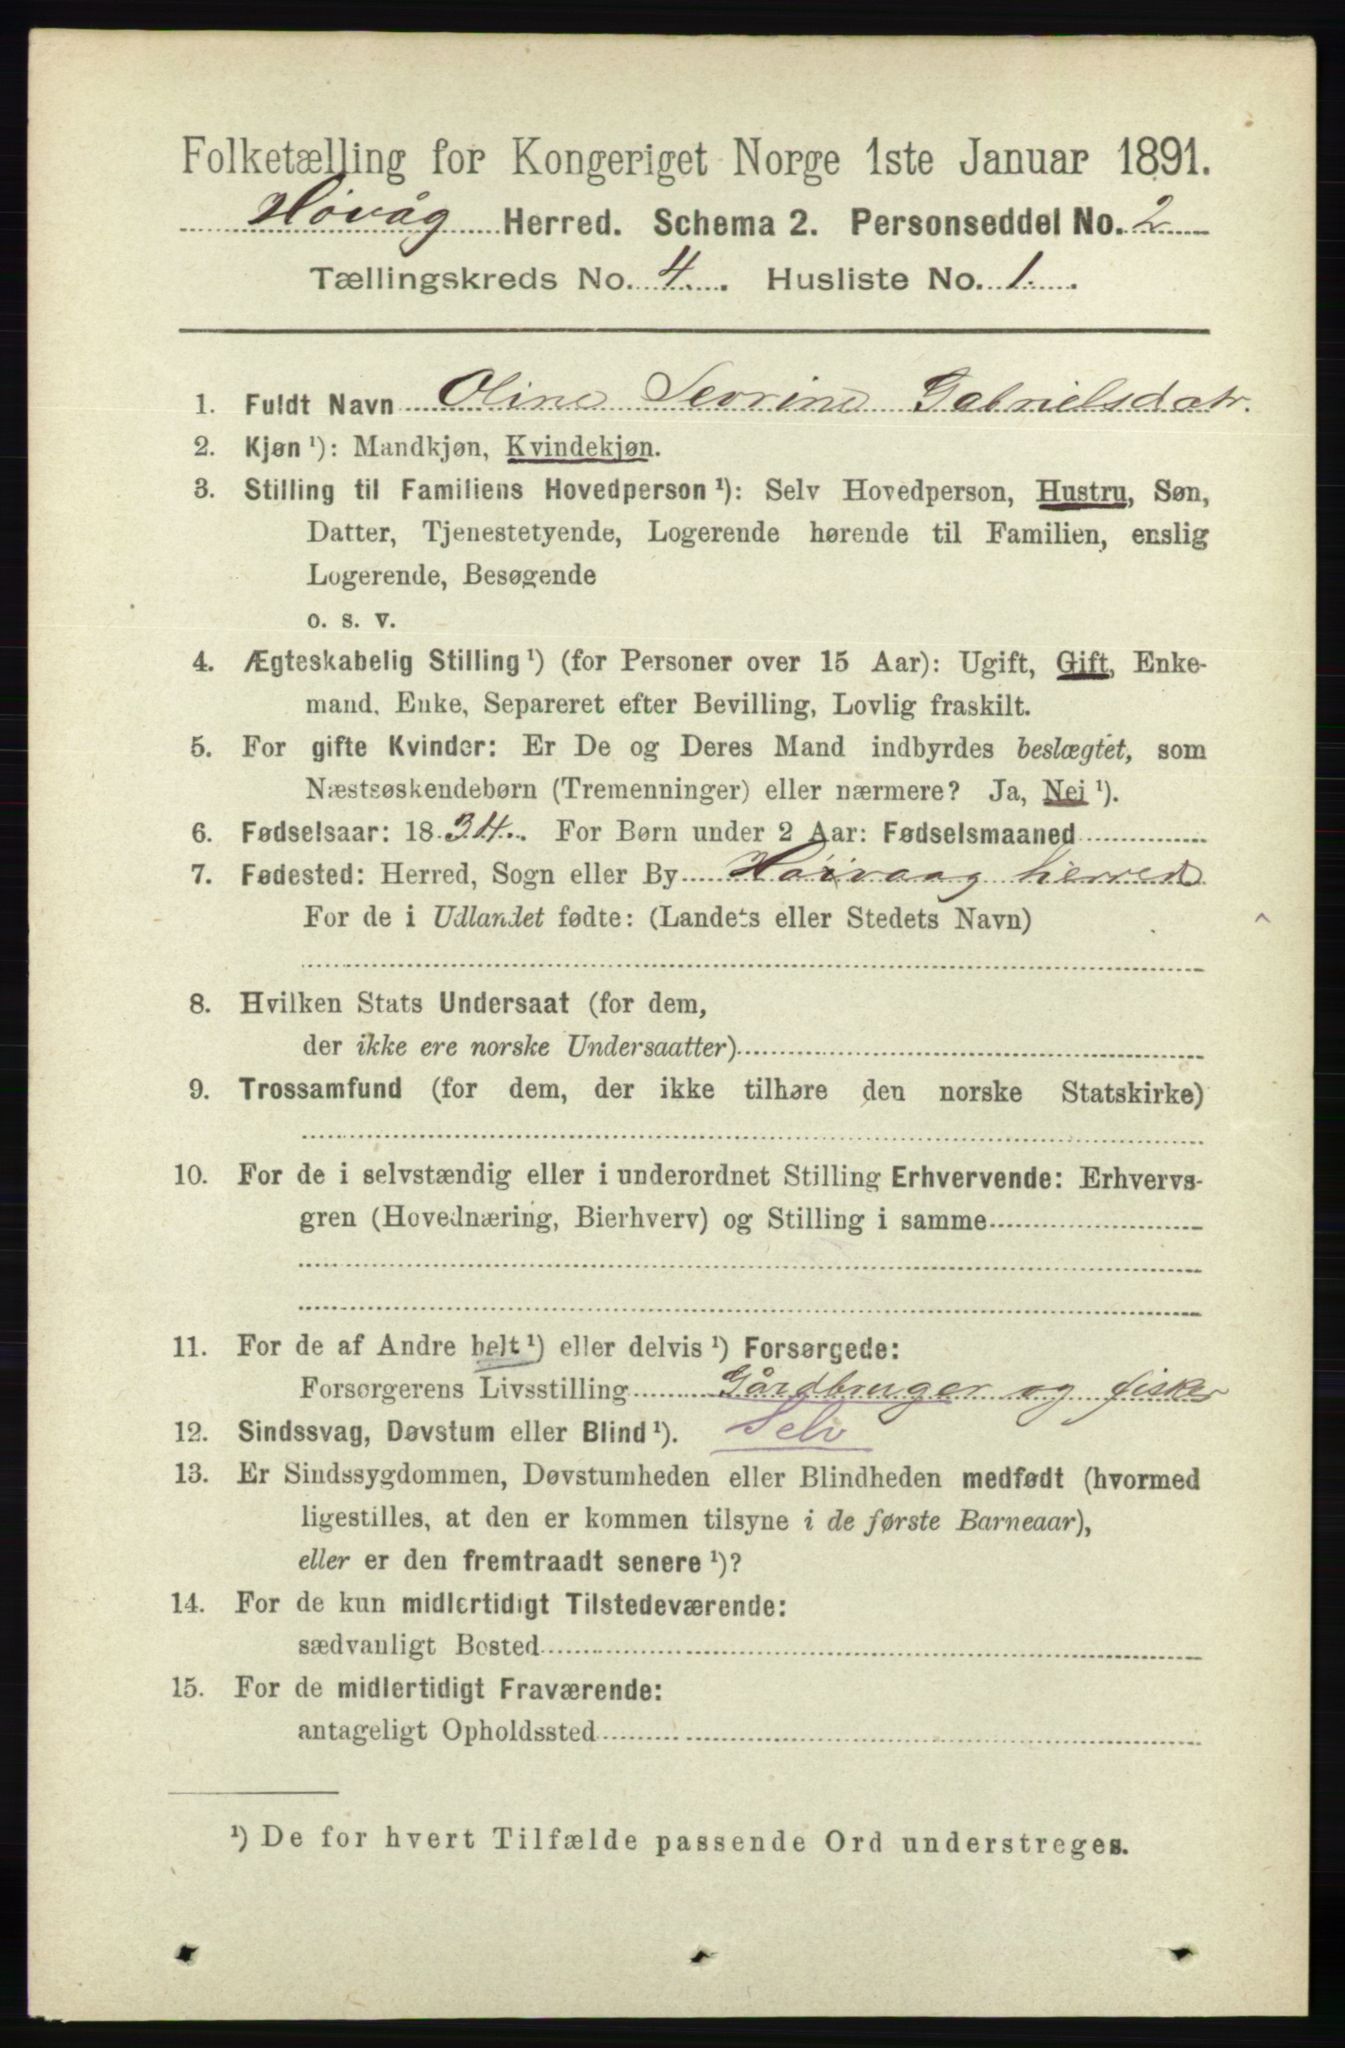 Folketælling for Kongeriget Norge 1ste Januar 1891.
Høvåg Herred. Schema 2. Personseddel No. 2
Tællingskreds No. 4. Husliste No. 1.
1. Fuldt Navn Oline Sevrine Gabrielsdatr.
2. Kjøn ¹): Mandkjøn, Kvindekjøn.
3. Stilling til Familiens Hovedperson ¹): Selv Hovedperson, Hustru, Søn,
Datter, Tjenestetyende, Logerende hørende til Familien, enslig
Logerende, Besøgende
o. s. v.
4. Ægteskabelig Stilling ¹) (for Personer over 15 Aar): Ugift, Gift, Enke-
mand, Enke, Separeret efter Bevilling, Lovlig fraskilt.
5. For gifte Kvinder: Er De og Deres Mand indbyrdes beslægtet, som
Næstsøskendebørn (Tremenninger) eller nærmere? Ja, Nei ¹).
6. Fødselsaar: 1834. For Børn under 2 Aar: Fødselsmaaned
7. Fødested: Herred, Sogn eller By Høivaag herred
For de i Udlandet fødte: (Landets eller Stedets Navn)
8. Hvilken Stats Undersaat (for dem,
der ikke ere norske Undersaatter)
9. Trossamfund (for dem, der ikke tilhøre den norske Statskirke)
10. For de i selvstændig eller i underordnet Stilling Erhvervende: Erhvervs-
gren (Hovednæring, Bierhverv) og Stilling i samme
11. For de af Andre helt ¹) eller delvis ¹) Forsørgede:
Forsørgerens Livsstilling Gårdbruger og fisker
12. Sindssvag, Døvstum eller Blind ¹). Selv
13. Er Sindssygdommen, Døvstumheden eller Blindheden medfødt (hvormed
ligestilles, at den er kommen tilsyne i de første Barneaar),
eller er den fremtraadt senere ¹)?
14. For de kun midlertidigt Tilstedeværende:
sædvanligt Bosted
15. For de midlertidigt Fraværende:
antageligt Opholdssted
¹) De for hvert Tilfælde passende Ord understreges.